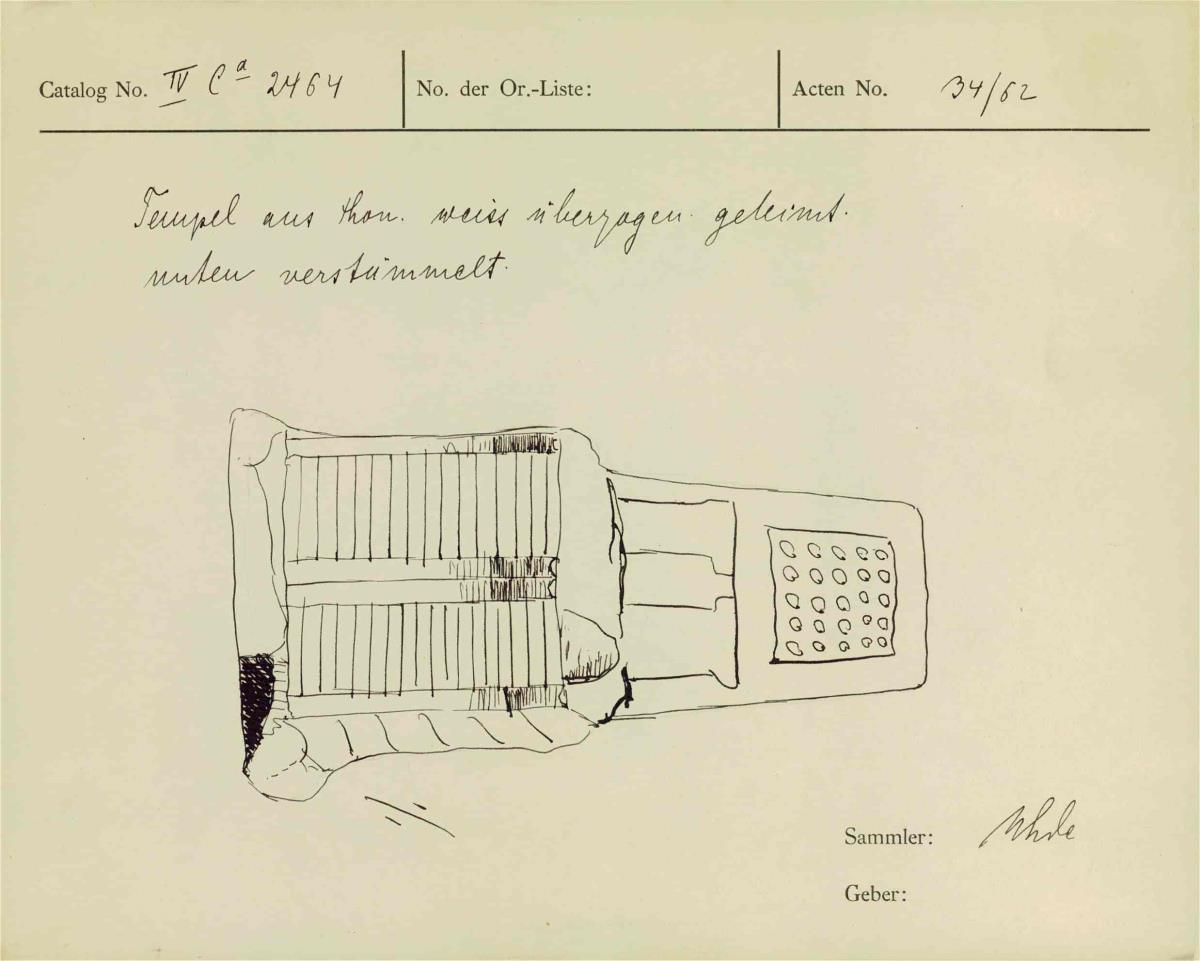 Catalog No. IV Ca 2464
No. der Or.-Liste:
Acten No. 34/62
Tempel aus thon. weiss überzogen. geleimt.
unten verstümmelt.
Sammler: Uhde
Geber: